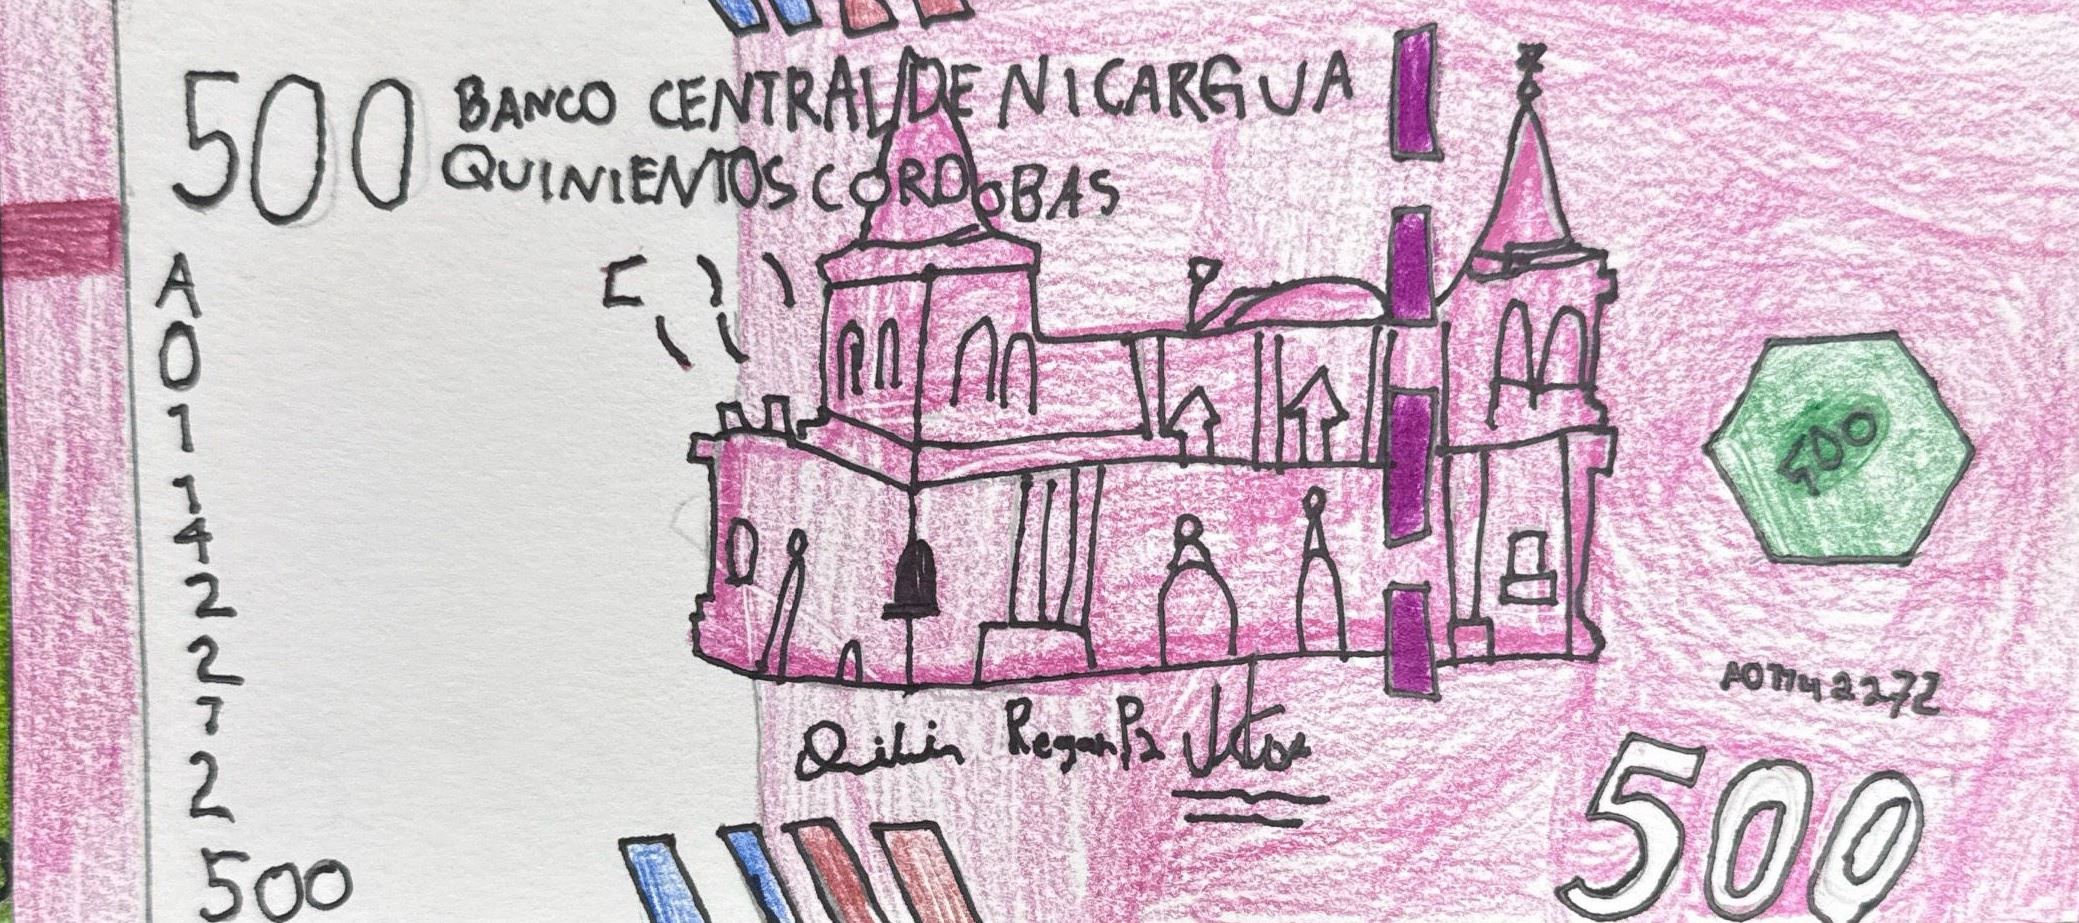 500 BANCO CENTRAL DE NICARGUA
QUINIENTOS CORDOBAS
A
0
1
1
4
2
2
7
2
500
500
A01142272
500